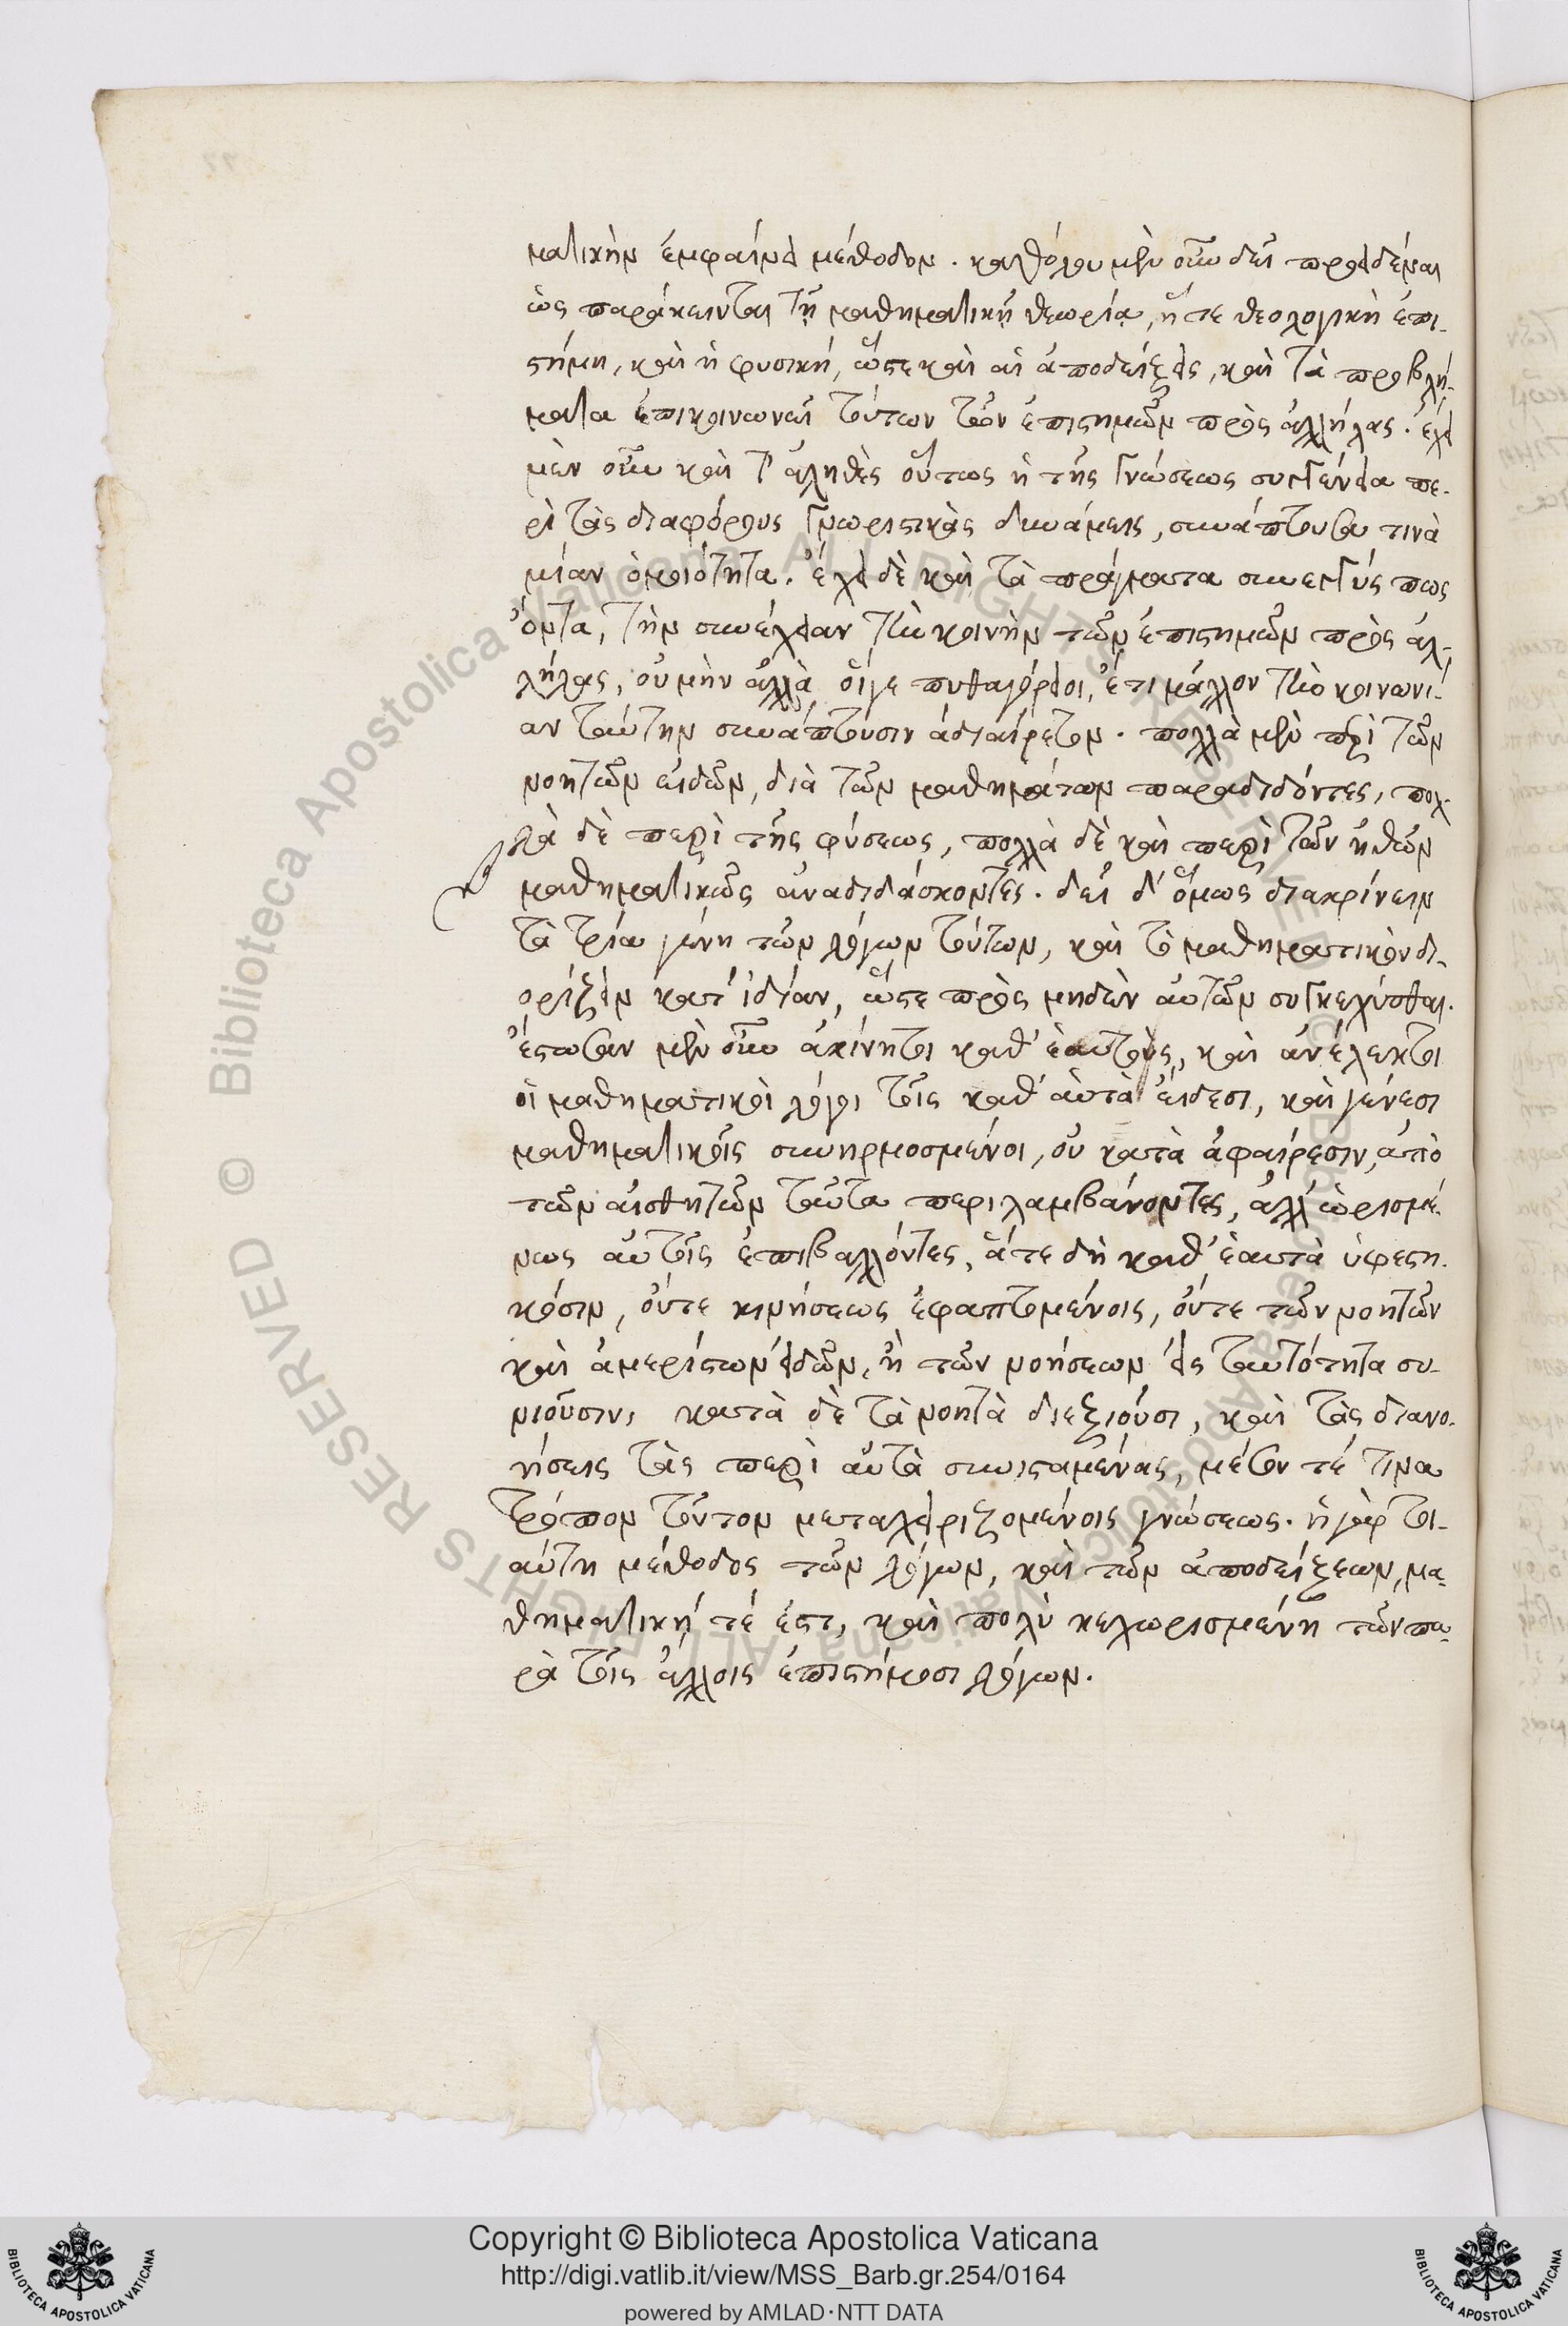 ματικὴν ἐμφαίνει μέθοδον. καθόλου μὲν οὖν δεῖ προειδέναι
ὡς παράκεινται τῇ μαθηματικῇ θεωρίᾳ, ἥ τε θεολογικὴ ἐπι-
στήμη, καὶ ἡ φυσική, ὥστε καὶ αἱ ἀποδείξεις, καὶ τὰ προβλή-
ματα ἐπικοινωνεῖ τούτων τῶν ἐπιστημῶν πρὸς ἀλλήλας. ἔχει
μὲν οὖν καὶ τ' ἀληθὲς οὕτως ἡ τῆς γνώσεως συγγένεια πε-
ρὶ τὰς διαφόρους γνωριστικὰς δυνάμεις, συνάπτουσα τινὰ
μίαν ὁμοιότητα. ἔχει δὲ καὶ τὰ πράγματα συνεγγύς πως
ὄντα, τὴν συνέχειαν τὴν κοινὴν τῶν ἐπιστημῶν πρὸς ἀλ-
λήλας, οὐ μὴν ἀλλὰ οἵγε πυθαγόρειοι, ἔτι μᾶλλον τὴν κοινωνί-
αν ταύτην συνάπτουσιν ἀδιαίρετον. πολλὰ μὲν περὶ τῶν
νοητῶν εἰδῶν, διὰ τῶν μαθημάτων παραδιδόντες, πολ-
λὰ δὲ περὶ τῆς φύσεως, πολλὰ δὲ καὶ περὶ τῶν ἠθῶν
μαθηματικῶς ἀναδιδάσκοντες. δεῖ δ' ὅμως διακρίνειν
τὰ τρία γένη τῶν λόγων τούτων, καὶ τὸ μαθηματικὸν δι-
ορίζειν κατ' ἰδίαν, ὥστε πρὸς μηδὲν αὐτῶν συγκεχύσθαι.
ἔστωσαν μὲν οὖν ἀκίνητοι καθ' ἑαυτοὺς, καὶ ἀνέλεγκτοι
οἱ μαθηματικοὶ λόγοι τοῖς καθ' αὑτὰ εἴδεσι, καὶ γένεσι
μαθηματικοῖς συνηρμοσμένοι, οὐ κατὰ ἀφαίρεσιν, ἀπὸ
τῶν αἰσθητῶν ταῦτα περιλαμβάνοντες, ἀλλ' ὡρισμέ-
νως αὐτοῖς ἐπιβαλλόντες, ἅτε δὴ καθ' ἑαυτὰ ὑφεστη-
κόσιν, οὔτε κινήσεως ἐφαπτομένοις, οὔτε τῶν νοητῶν
καὶ ἀμερίστων εἰδῶν, ἢ τῶν νοήσεων εἰς ταυτότητα συ-
νιοῦσιν, κατὰ δὲ τὰ νοητὰ διεξιοῦσι, καὶ τὰς διανο-
ήσεις τὰς περὶ αὐτὰ συνισταμένας, μέσον τέ τινα
τρόπον τοῦτον μεταχειριζομένοις γνώσεως. ἡ γὰρ τοι-
αύτη μέθοδος τῶν λόγων, καὶ τῶν ἀποδείξεων, μα-
θηματική τέ ἐστι, καὶ πολὺ κεχωρισμένη τῶν πα-
ρὰ τοῖς ἄλλοις ἐπιστήμοσι λόγων.
© Biblioteca Apostolica Vaticana ALL RIGHTS RESERVED
© Biblioteca Apostolica Vaticana ALL RIGHTS RESERVED
Copyright © Biblioteca Apostolica Vaticana
http://digi.vatlib.it/view/MSS_Barb.gr.254/0164
powered by AMLAD·NTT DATA
BIBLIOTECA APOSTOLICA VATICANA
BIBLIOTECA APOSTOLICA VATICANA